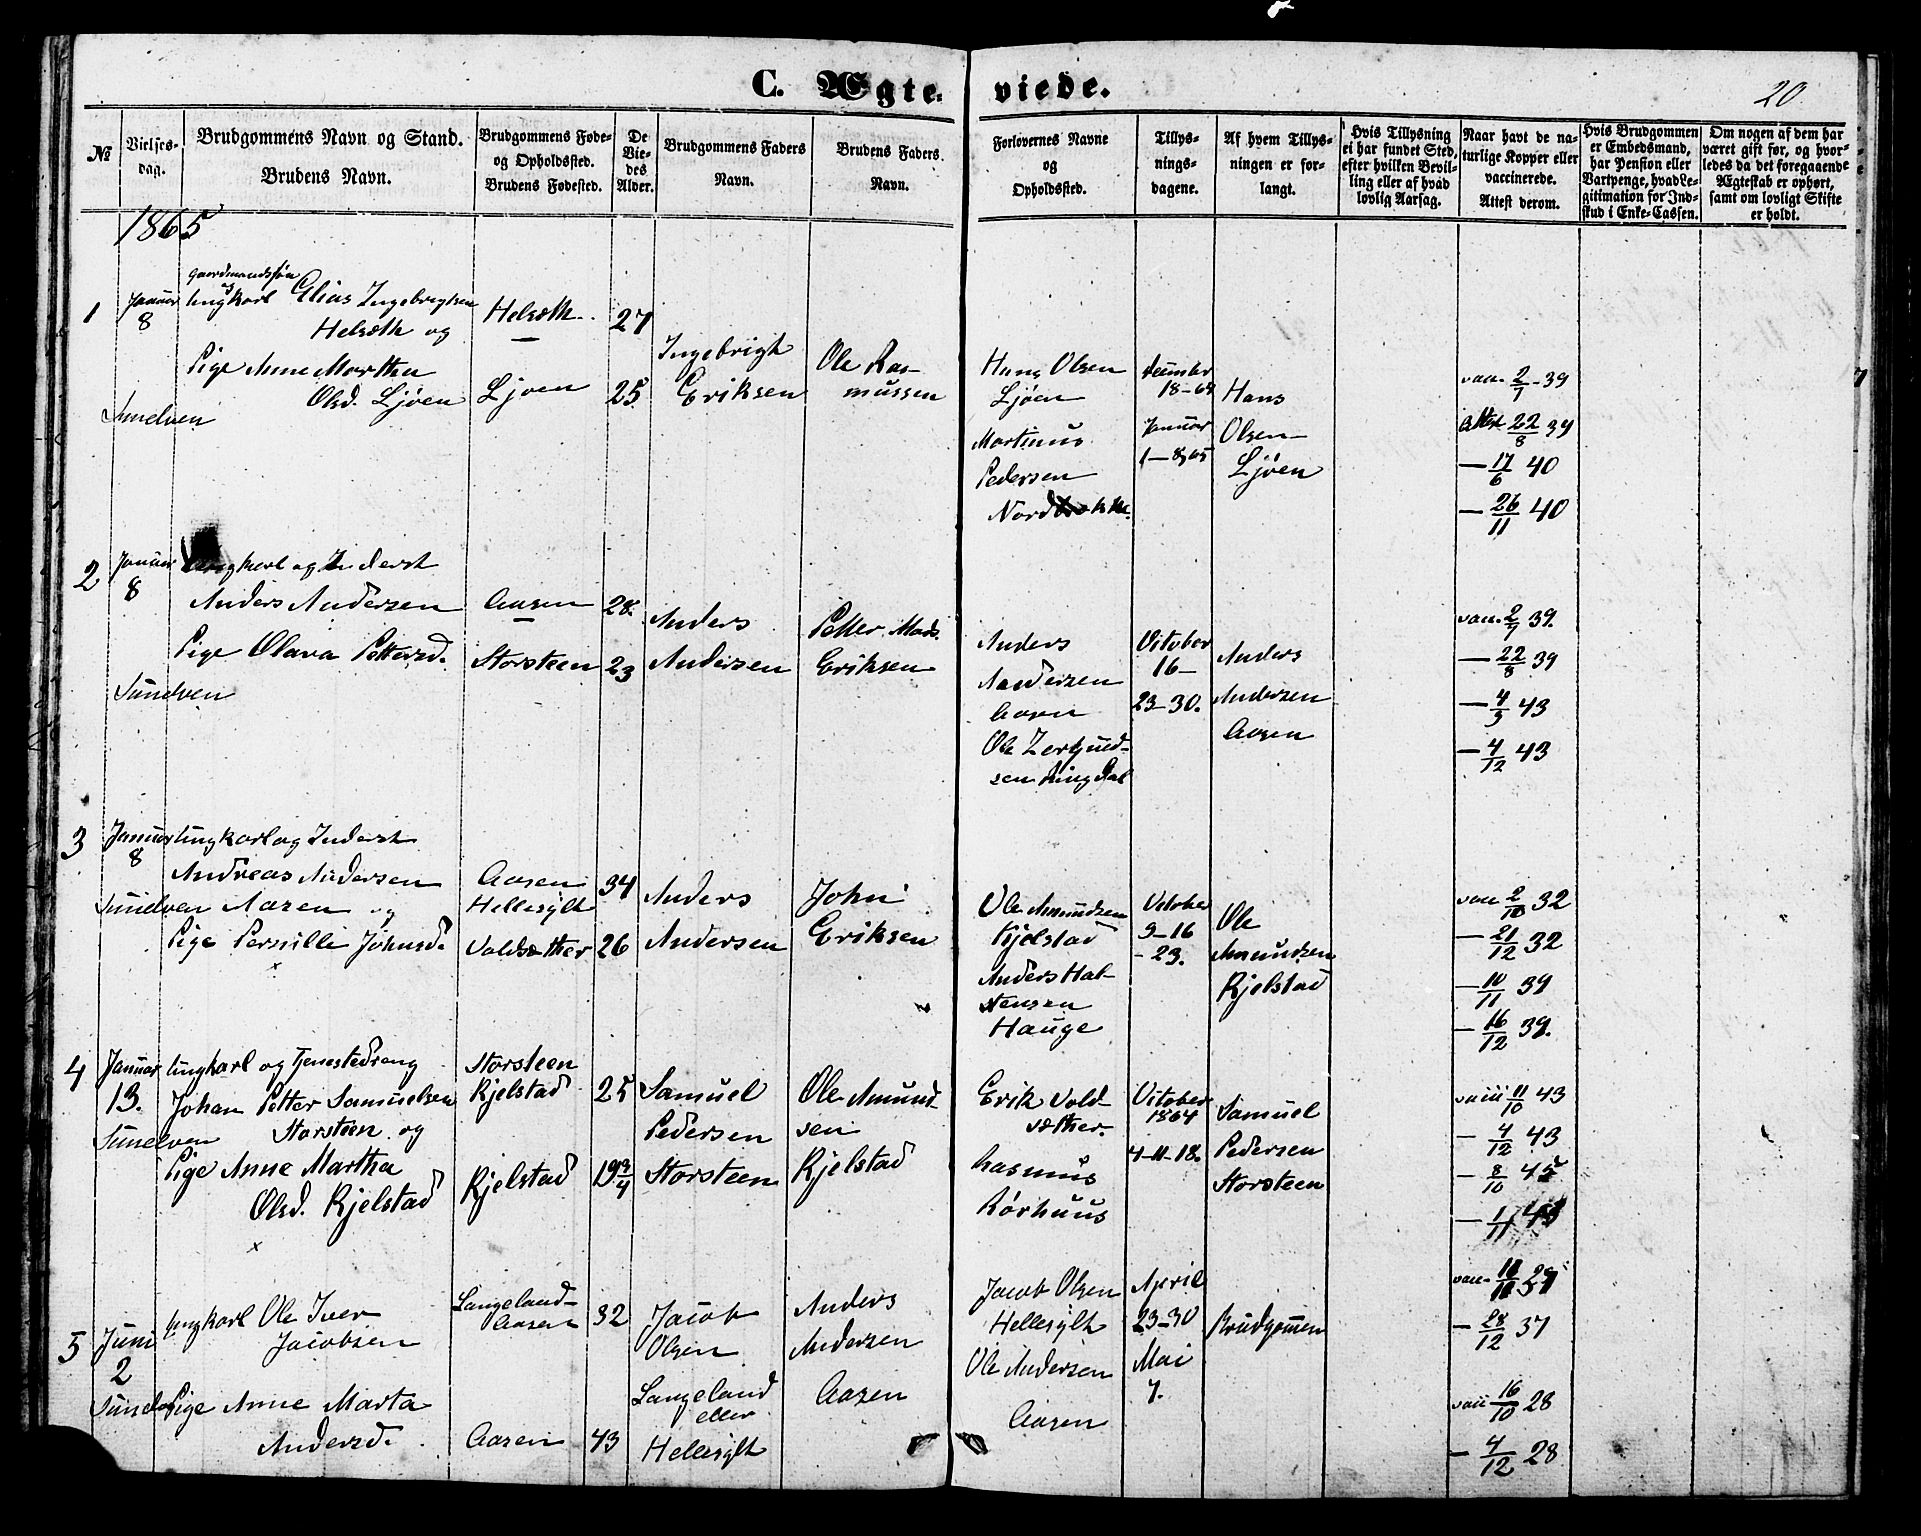 C. Ægteviede.
20
№
Vielses-
dag.
Brudgommens Navn og Stand.
Brudens Navn.
Brudgommens Føde-
og Opholdssted.
Brudens Fødested.
De
Vie-
des
Alder.
Brudgommens Faders
Navn.
Brudens Faders
Navn.
Forlovernes Navne
og
Opholdssted.
Tillys-
nings-
dagene.
Af hvem Tillys-
ningen er for-
langt.
Hvis Tillysning
ei har fundet Sted,
efter hvilken Bevil-
ling eller af hvad
lovlig Aarsag.
Naar havt de na-
turlige Kopper eller
vaccinerede.
Attest derom.
Hvis Brudgommen
er Embedsmand,
har Pension eller
Vartpenge, hvad Le-
gitimation for Ind-
skud i Enke-Cassen.
Om nogen af dem har
været gift før, og hvor-
ledes da det foregaaende
Ægteskab er ophørt,
samt om lovligt Skifte
er holdt.
1865
1
Januar
8
Sunelven
gaardmandssøn
og
Ungkarl Elias Ingebrigtsen
Helsæth og
Pige Anne Martha
Olsd. Ljøen
Helsæth
Ljøen
27
25
Ingebrigt
Eriksen
Ole Ras-
mussen
Hans Olsen
Ljøen
Martinus
Pedersen
December
18-64
Januar
1-8 65
Hans
Olsen
Ljøen
vacc. 2/7 39
Attest 22/8 39
- 17/6 40
- 26/11 40
2
Januar
8
Sunelven
Ungkarl og Inderst
Anders Andersen
Pige Olava Pettersd.
Aasen
Storsteen
28
23
Anders
Andersen
Petter Mads
Eriksen
Anders
Andersen
Aasen
Ole
sen Ringdal
October
16-
23-30.
Anders
Andersen
Aasen
vacc. 2/7 39.
- 22/8 39
- 4/3 43
- 4/12 43
3
Januar
8
Sunelven
Ungkarl og Inderst
Andreas Andersen
Aasen og
Pige Pernille Johnsd.
x
Aasen
Hellesylt
Voldsæther
34
26
Anders
Andersen
John
Eriksen
Ole Amundsen
Kjelstad
Anders Hal-
stensen
Hauge
October
9-16
- 23.
Ole
Amundsen
Kjelstad
vacc. 2/10 32
- 21/12 32
- 10/11 39
- 16/12 39.
4
Januar
13.
Sunelven
Ungkarl og Tjenestedreng
Johan Petter Samuelsen
Storsteen og
Pige Anne Martha
Olsd. Kjelstad
x
Storsteen
Kjelstad
Kjelstad
25
19 3/4
Samuel
Pedersen
Storsteen
Ole Amund-
sen
Kjelstad
Erik Vold-
sæther.
Rasmus
Rørhuus
October
1864
4-11-18.
Samuel
Pedersen
Storsteen
vacc 11/10 43
- 4/12 43
- 8/10 45
- 1/11
5
Juni
2
Ungkarl Ole Iver
Jacobsen
Pige Anne Marta
Andersd.
Langeland-
Aasen
Aasen
32
43
Jacob
Olsen
Langeland
eller
Hellesylt
Anders
Andersen
Aasen
Jacob Olsen
Hellesylt
Ole Andersen
Aasen
April
23-30
Mai
7.
Brudgommen
vacc.
- 28/12 37
vacc 16/10 28
- 4/12 28